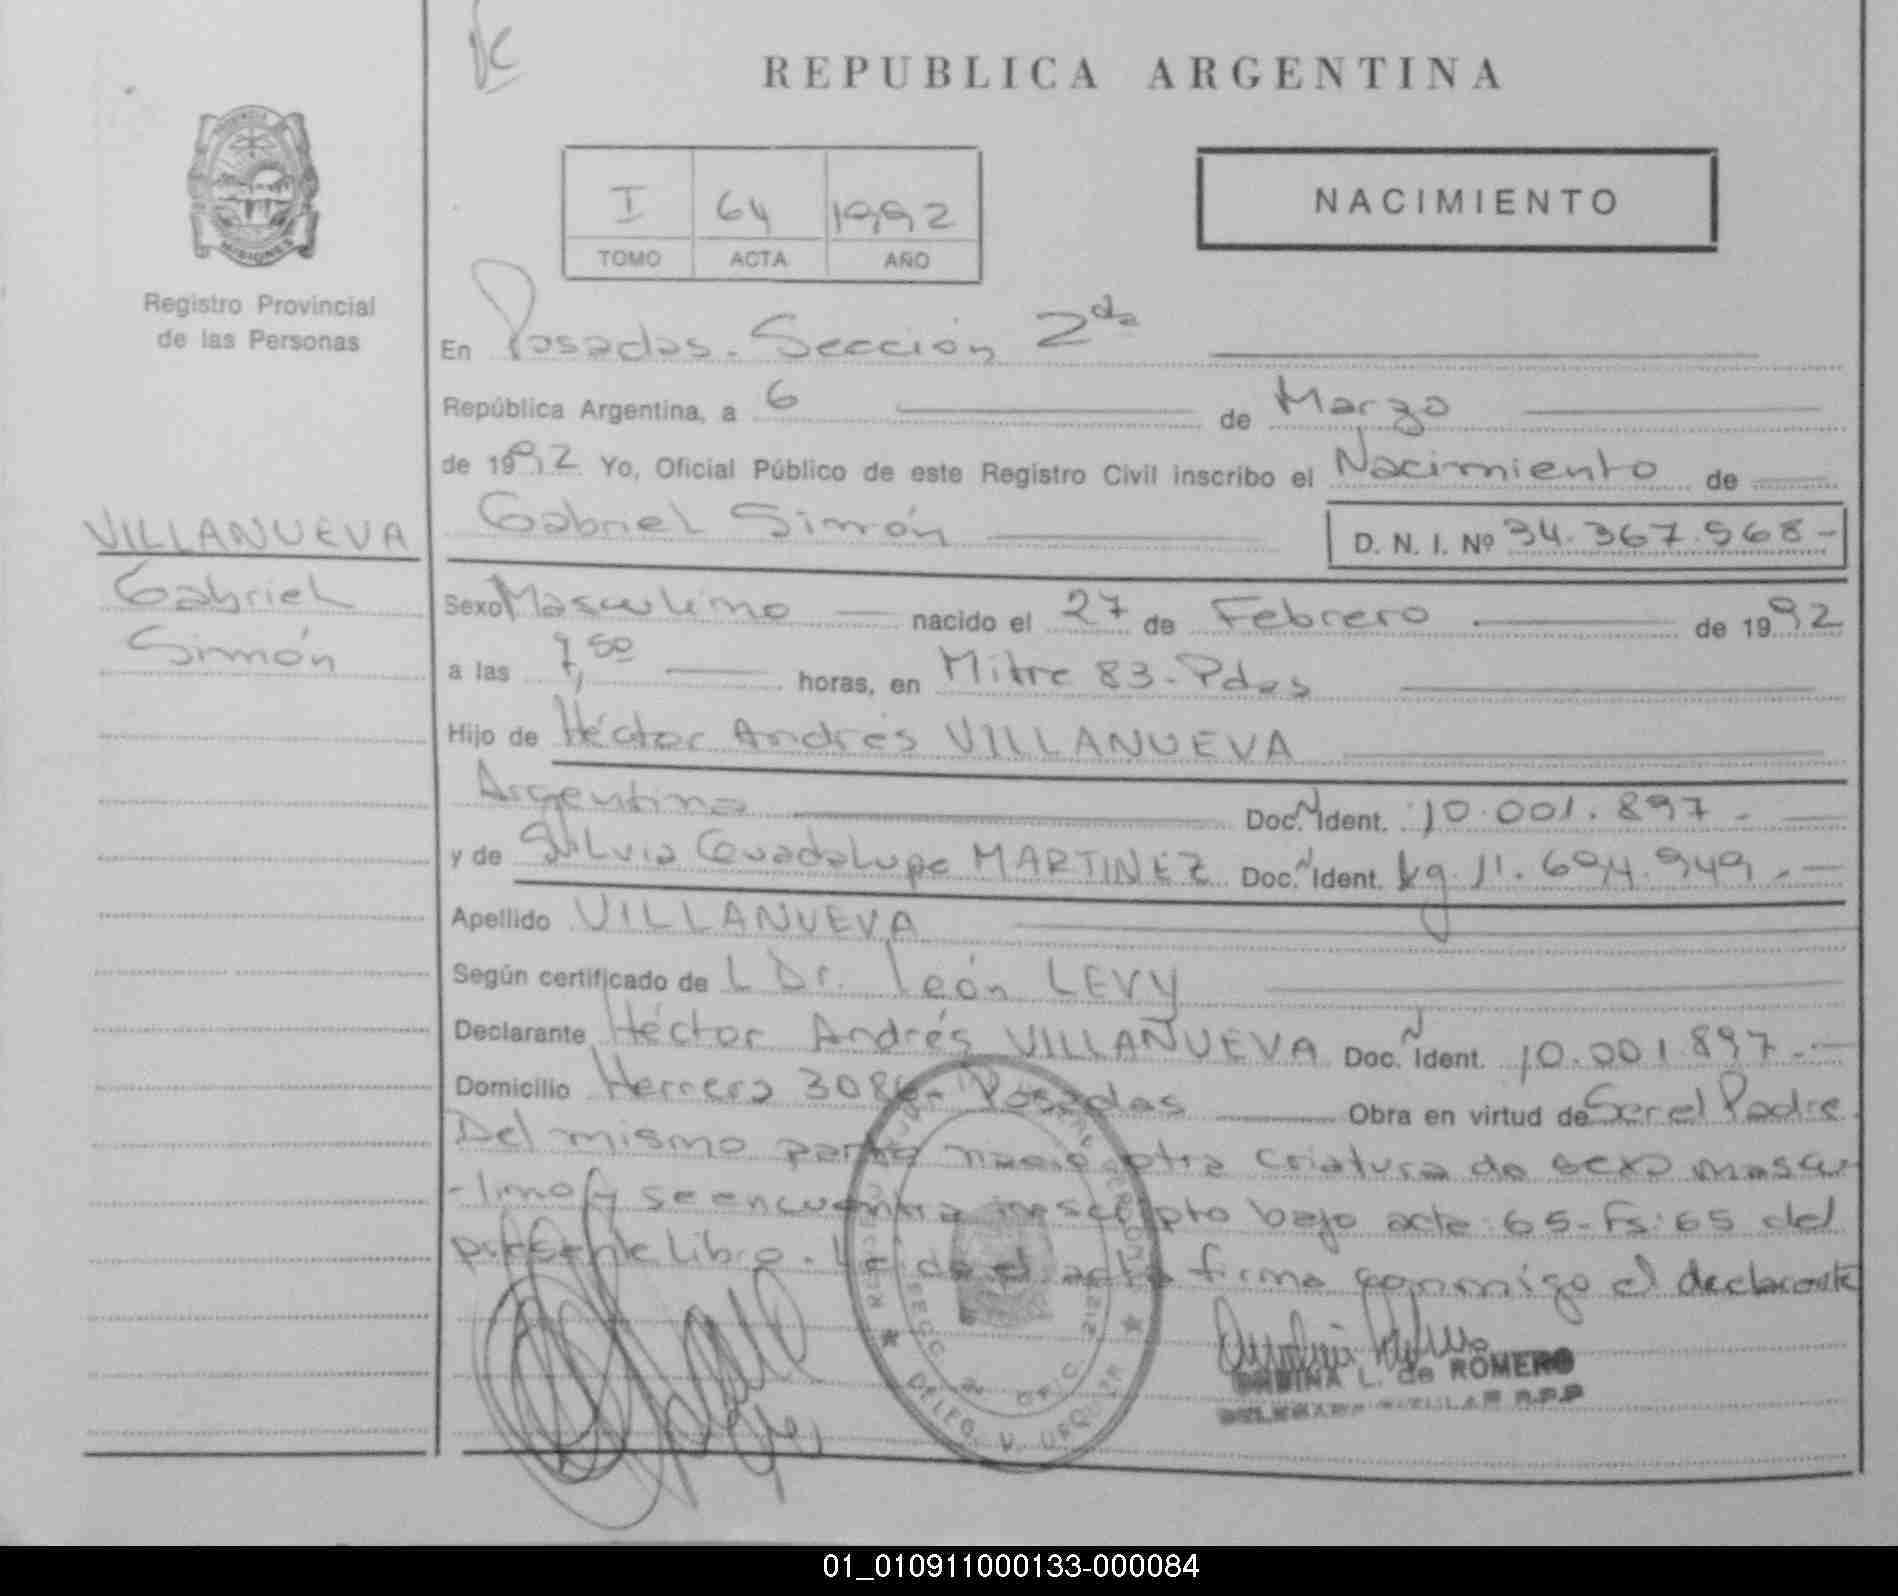 REPUBLICA ARGENTINA
PROVINCIA
MISIONES
Registro Provincial
de las Personas
I 64 1992
TOMO ACTA AÑO
NACIMIENTO
En Posadas. Sección 2da
República Argentina, a 6 de Marzo
de 1992 Yo, Oficial Público de este Registro Civil inscribo el Nacimiento de
Gabriel Simón D. N. I. Nº 34.367.568-
VILLANUEVA
Gabriel
Simón
Sexo Masculino nacido el 27 de Febrero de 1992
a las 7,50 horas, en Mitre 83-Pdas
Hijo de Héctor Andrés VILLANUEVA
Argentina Doc. Ident. 10.001.897-
y de Silvia Guadalupe MARTINEZ Doc. Ident. 11.694.949.-
Apellido VILLANUEVA
Según certificado de L Dr. León LEVY
Declarante Héctor Andrés VILLANUEVA Doc. Ident. 10.001.897.-
Domicilio Herrera 3086- Posadas Obra en virtud de Ser el Padre.
Del mismo parto nació otra criatura de sexo mascu-
-lino y se encuentra inscripto bajo acta: 65-Fs: 65 del
presente Libro. Leida el acta firma conmigo el declarante
SECC. 2 OFIC. 212
DELEG. V. URQUIZA
L. de ROMERO
R.P.P
01_010911000133-000084